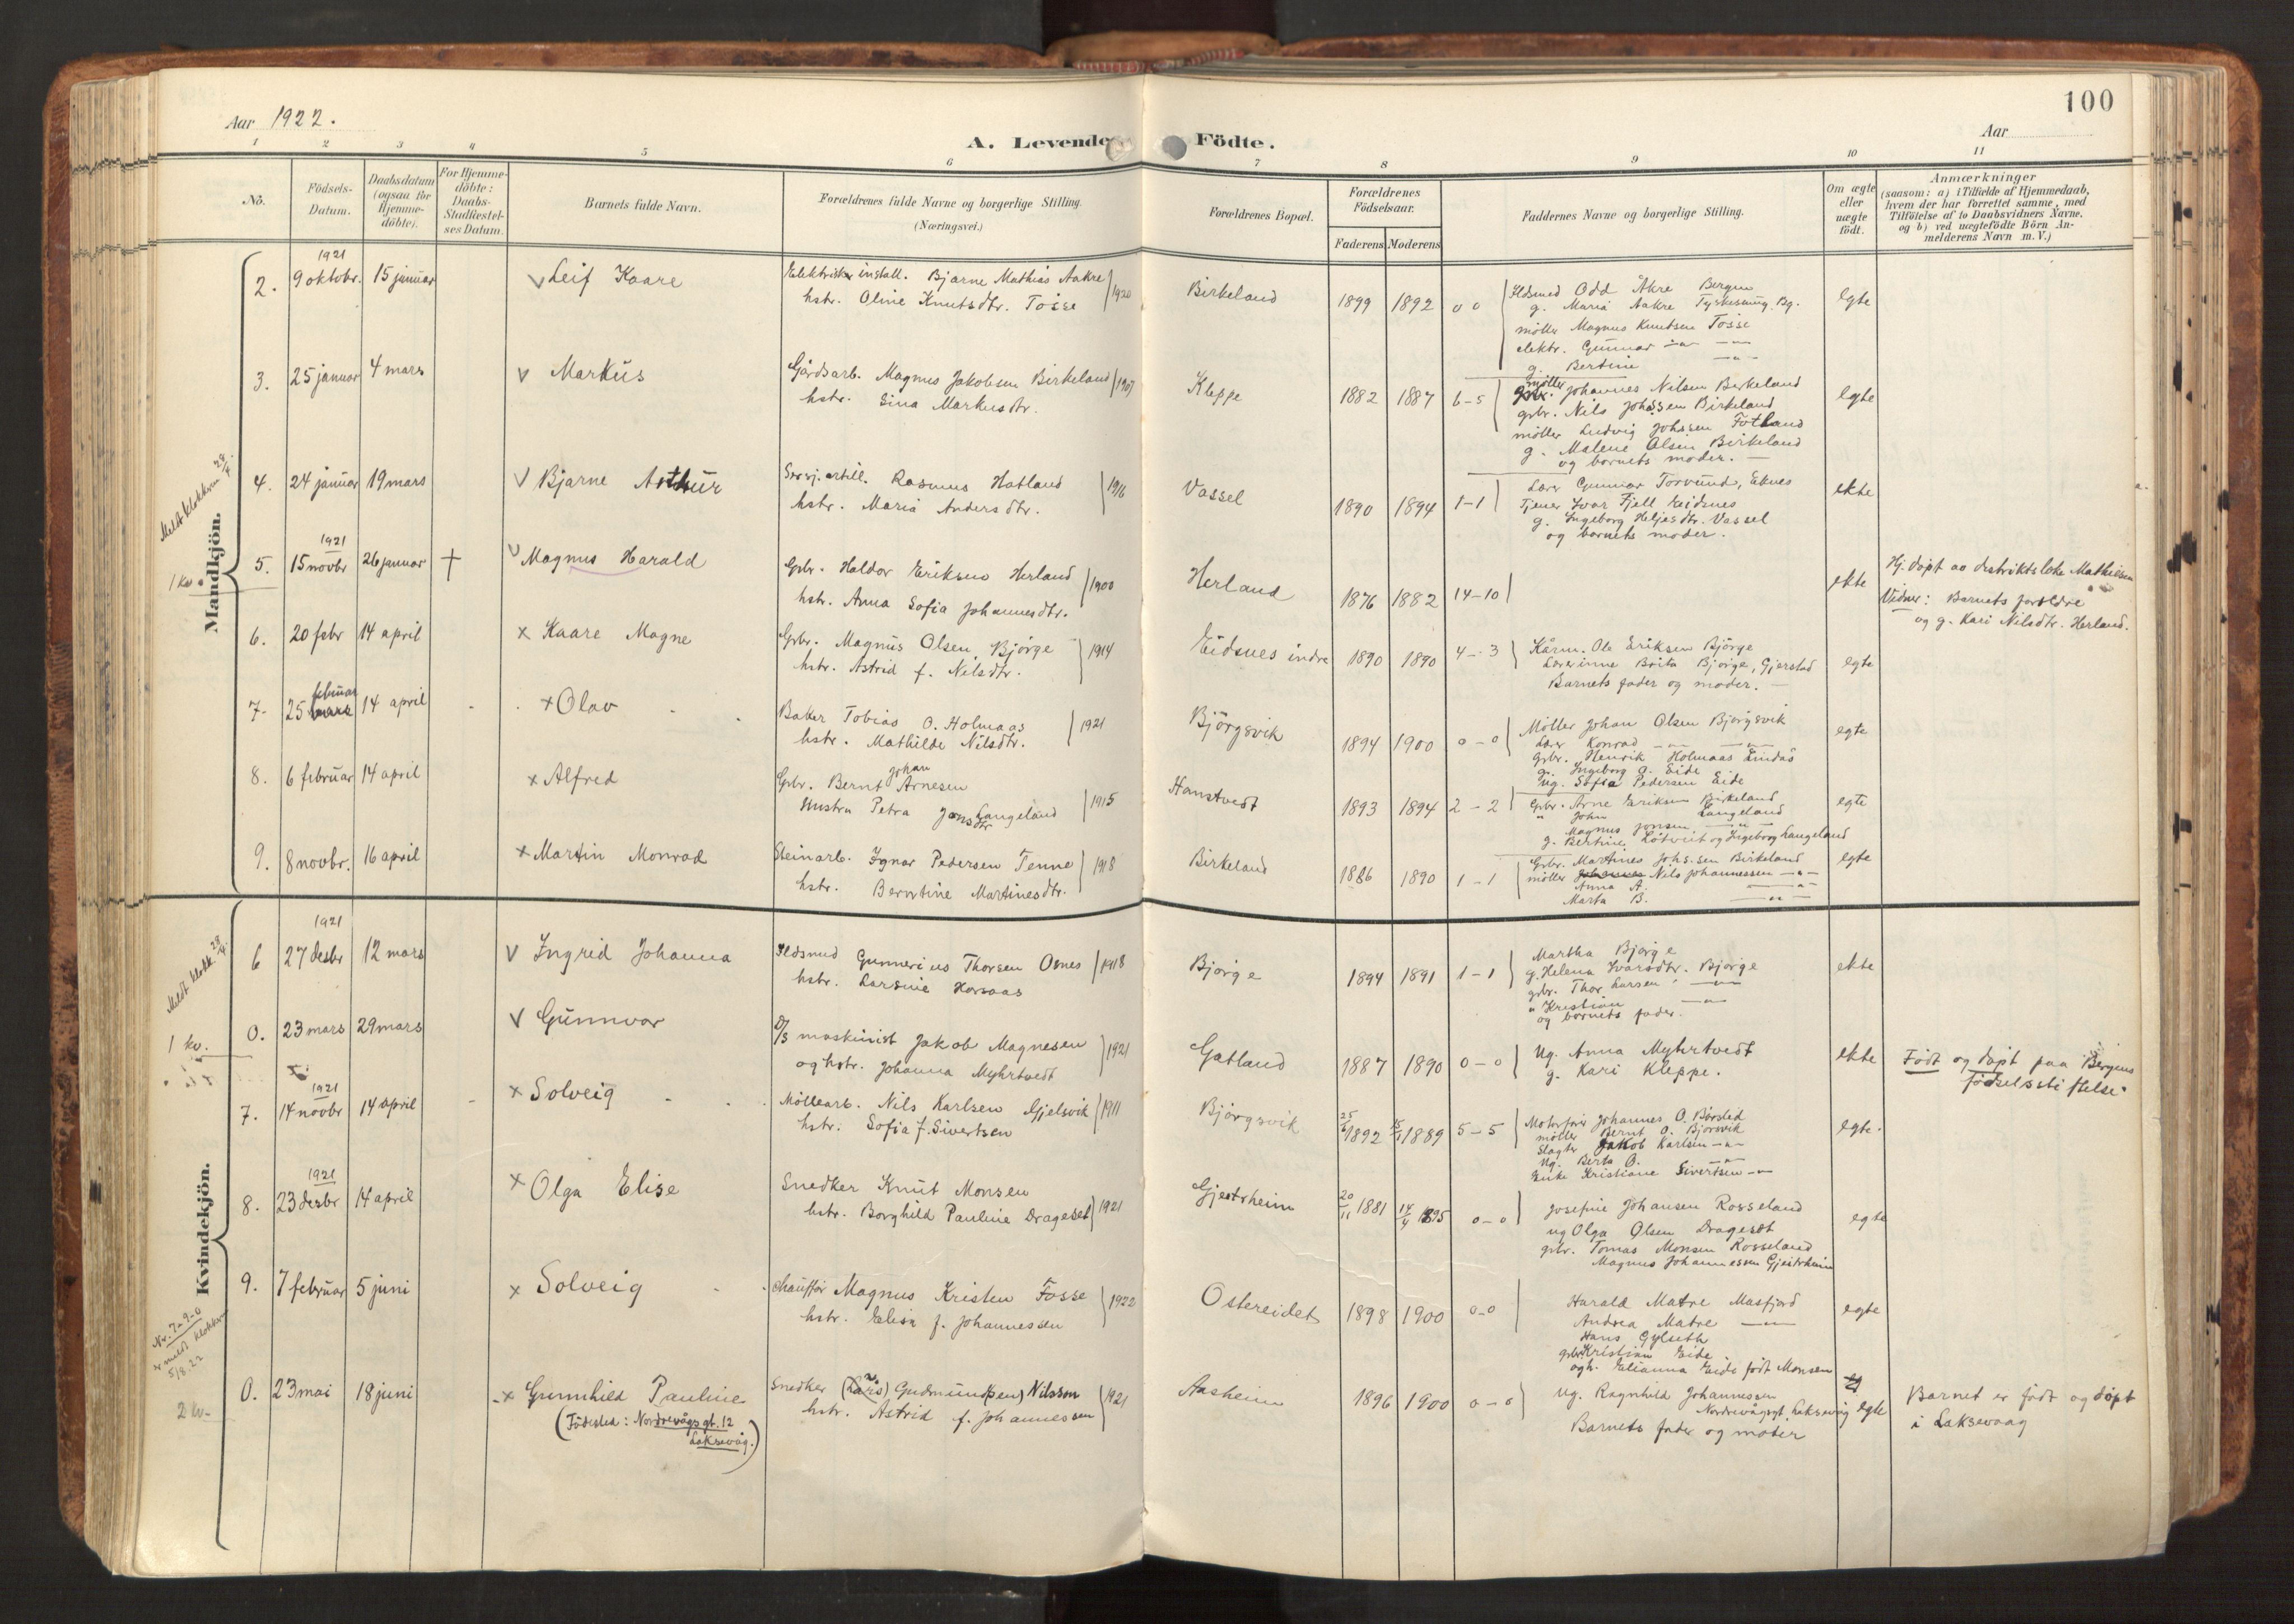 100
Aar 1922.
Aar
A. Levende Födte.
1 2 3 4 5 6 7 8 9 10 11
No.
Födsels-Datum.
Daabsdatum (ogsaa for Hjemme-döbte).
For Hjemme-döbte: Daabs-Stadfæstel-ses Datum.
Barnets fulde Navn.
Forældrenes fulde Navne og borgerlige Stilling.
(Næringsvei.)
Forældrenes Bopæl.
Forældrenes Födselsaar.
Faderens Moderens
Faddernes Navne og borgerlige Stilling.
Om ægte eller uægte födt.
Anmærkninger
(saasom: a) i Tilfælde af Hjemmedaab,
hvem der har forrettet samme, med
Tilföielse af to Daabsvidners Navne.
og b) ved uægtefödte Börn An-
melderens Navn m. V.)
Mandkjön.
1921
2. 9 oktobr. 15 januar Leif Kaare
Elektriker install. Bjarne Mathias Aakre
hstr. Oline Knutsdtr. Tosse 1920
Birkeland 1899 1892 0 0
Ildsmed Odd Åkre Bergen
g. Maria Aakre
möller Magnus Knutsen Tosse
elektr. Gunnar
g. Bertine
egte
3. 25 januar 4 mars Markus
Gårdsarb. Magnus Jakobsen Birkeland
hstr. Sina Markusdtr. 1907
Kleppe 1882 1887 6-5
möller Johannes Nilsen Birkeland
grbr. Nils Johssen Birkeland
möller Ludvig Johssen Fotland
g. Malene Olsen Birkeland
og barnets moder.
egte
4. 24 januar 19 mars Bjarne Arthur
Sersj. artill. Rasmus Hatland
hstr. Maria Andersdtr. 1916
Vassel 1890 1894 1-1
Lærer Gunnar Torvund, Eknes
Tjener Ivar Fjell Eidsnes
g. Ingeborg Heljesdtr. Vassel
og barnets moder.
ekte
1921
5. 15 novbr 26 januar † Magnus Harald
Grbr. Haldor Eriksen Herland
hstr. Anna Sofia Johannesdtr. 1900
Herland 1876 1882 14-10
ekte
Hj. döpt av distriktslæke Mathiesen
Vidner: Barnets foreldre
og g. Kari Nilsdtr. Herland.
6. 20 febr 14 april Kaare Magne
Grbr. Magnus Olsen Bjørge
hstr. Astrid f. Nilsdtr. 1914
Eidsnes indre 1890 1890 4-3
Kårm. Ole Eriksen Bjørge
Lærerinne Brita Bjørge, Gjerstad
Barnets fader og moder.
egte
7. 25 februar mars 14 april Olav
Baker Tobias O. Holmaas
hstr. Mathilde Nilsdtr. 1921
Bjørgsvik 1894 1900 0-0
Møller Johan Olsen Bjørgsvik
Lærer Konrad
grbr. Henrik Holmaas Lindås
g. Ingeborg O. Eide
Ug. Sofia Pedersen Eide
egte
8. 6 februar 14 april Alfred
Grbr. Bernt Johan Arnesen
Hustru Petra Jonsdtr Langeland 1915
Hanstvedt 1893 1894 2-2
Grbr. Arne Eriksen Birkeland
" John Langeland
Magnus Jonsen
g. Bertine Løtveit og Ingeborg Langeland
egte
9. 8 novbr. 16 april Martin Monrad
Steinarb. Ignar Pedersen Tenne
hstr. Berntine Martinesdtr. 1918
Birkeland 1886 1890 1-1
Grbr. Martines Johs.sen Birkeland
möller Johannes Nils Johannessen
Anna A.
Marta B.
egte
Kvindekjön.
1921
6 27 desbr 12 mars Ingrid Johanna
Ildsmed Gunnerius Thorsen Osnes
hstr. Larsine Horsaas 1918
Bjørge 1894 1891 1-1
Martha Bjørge
g. Helena Ivarsdtr. Bjørge
grbr. Thor Larsen
" Kristian
og barnets fader.
ekte
0. 23 mars 29 mars Gunnvor
D/S maskinist Jakob Magnesen
og hstr. Johanna Myhrtvedt 1921
Gatland 1887 1890 0-0
Ug. Anna Myhrtvedt
g. Kari Kleppe.
ekte
Født og døpt paa Bergens
fødselsstiftelse.
1 kv.
1921
7. 14 novbr 14 april Solveig
Möllearb. Nils Karlsen Gjelsvik
hstr. Sofia f. Sivertsen 1911
Bjørgsvik 1892 1889 5-5
Johannes O. Børsted
möller Bernt O. Bjørsvik
Slagter Jakob Karlsen
Ug. Berta O.
Enke Kristiane Sivertsen
egte.
1921
8. 23 desbr 14 april Olga Elise
Snedker Knut Monsen
hstr. Borghild Pauline Drageset 1921
Gjestrheim 20/11 1881 14/4 1895 0-0
Josefine Johansen Rosseland
ug Olga Olsen Dragesæt
grbr. Tomas Monsen Rosseland
Magnus Johannessen Gjestrheim
egte
9. 7 februar 5 juni Solveig
Chauffør Magnus Kristen Fosse
hstr. Elisa f. Johannessen 1922
Ostereidet 1898 1900 0-0
Harald Matre Masfjord
Andrea Matre
Hans Gylseth
grbr Kristian Eide
og h. Elianna Eide født Monsen
egte
Nr. 7-9-0
er meldt klokker
5/8.22
0. 23 mai 18 juni Gunnhild Pauline
(Födested: Nordrevågsgt. 12
Laksevåg.)
Snedker (Lars) Gudmund(sen) Nilssen
hstr. Astrid f. Johannessen 1921
Aasheim 1896 1900 0-0
Ug. Ragnhild Johannessen
Nordrevågsgt. Laksevåg
Barnets fader og moder
egte
Barnet er født og døpt
i Laksevaag